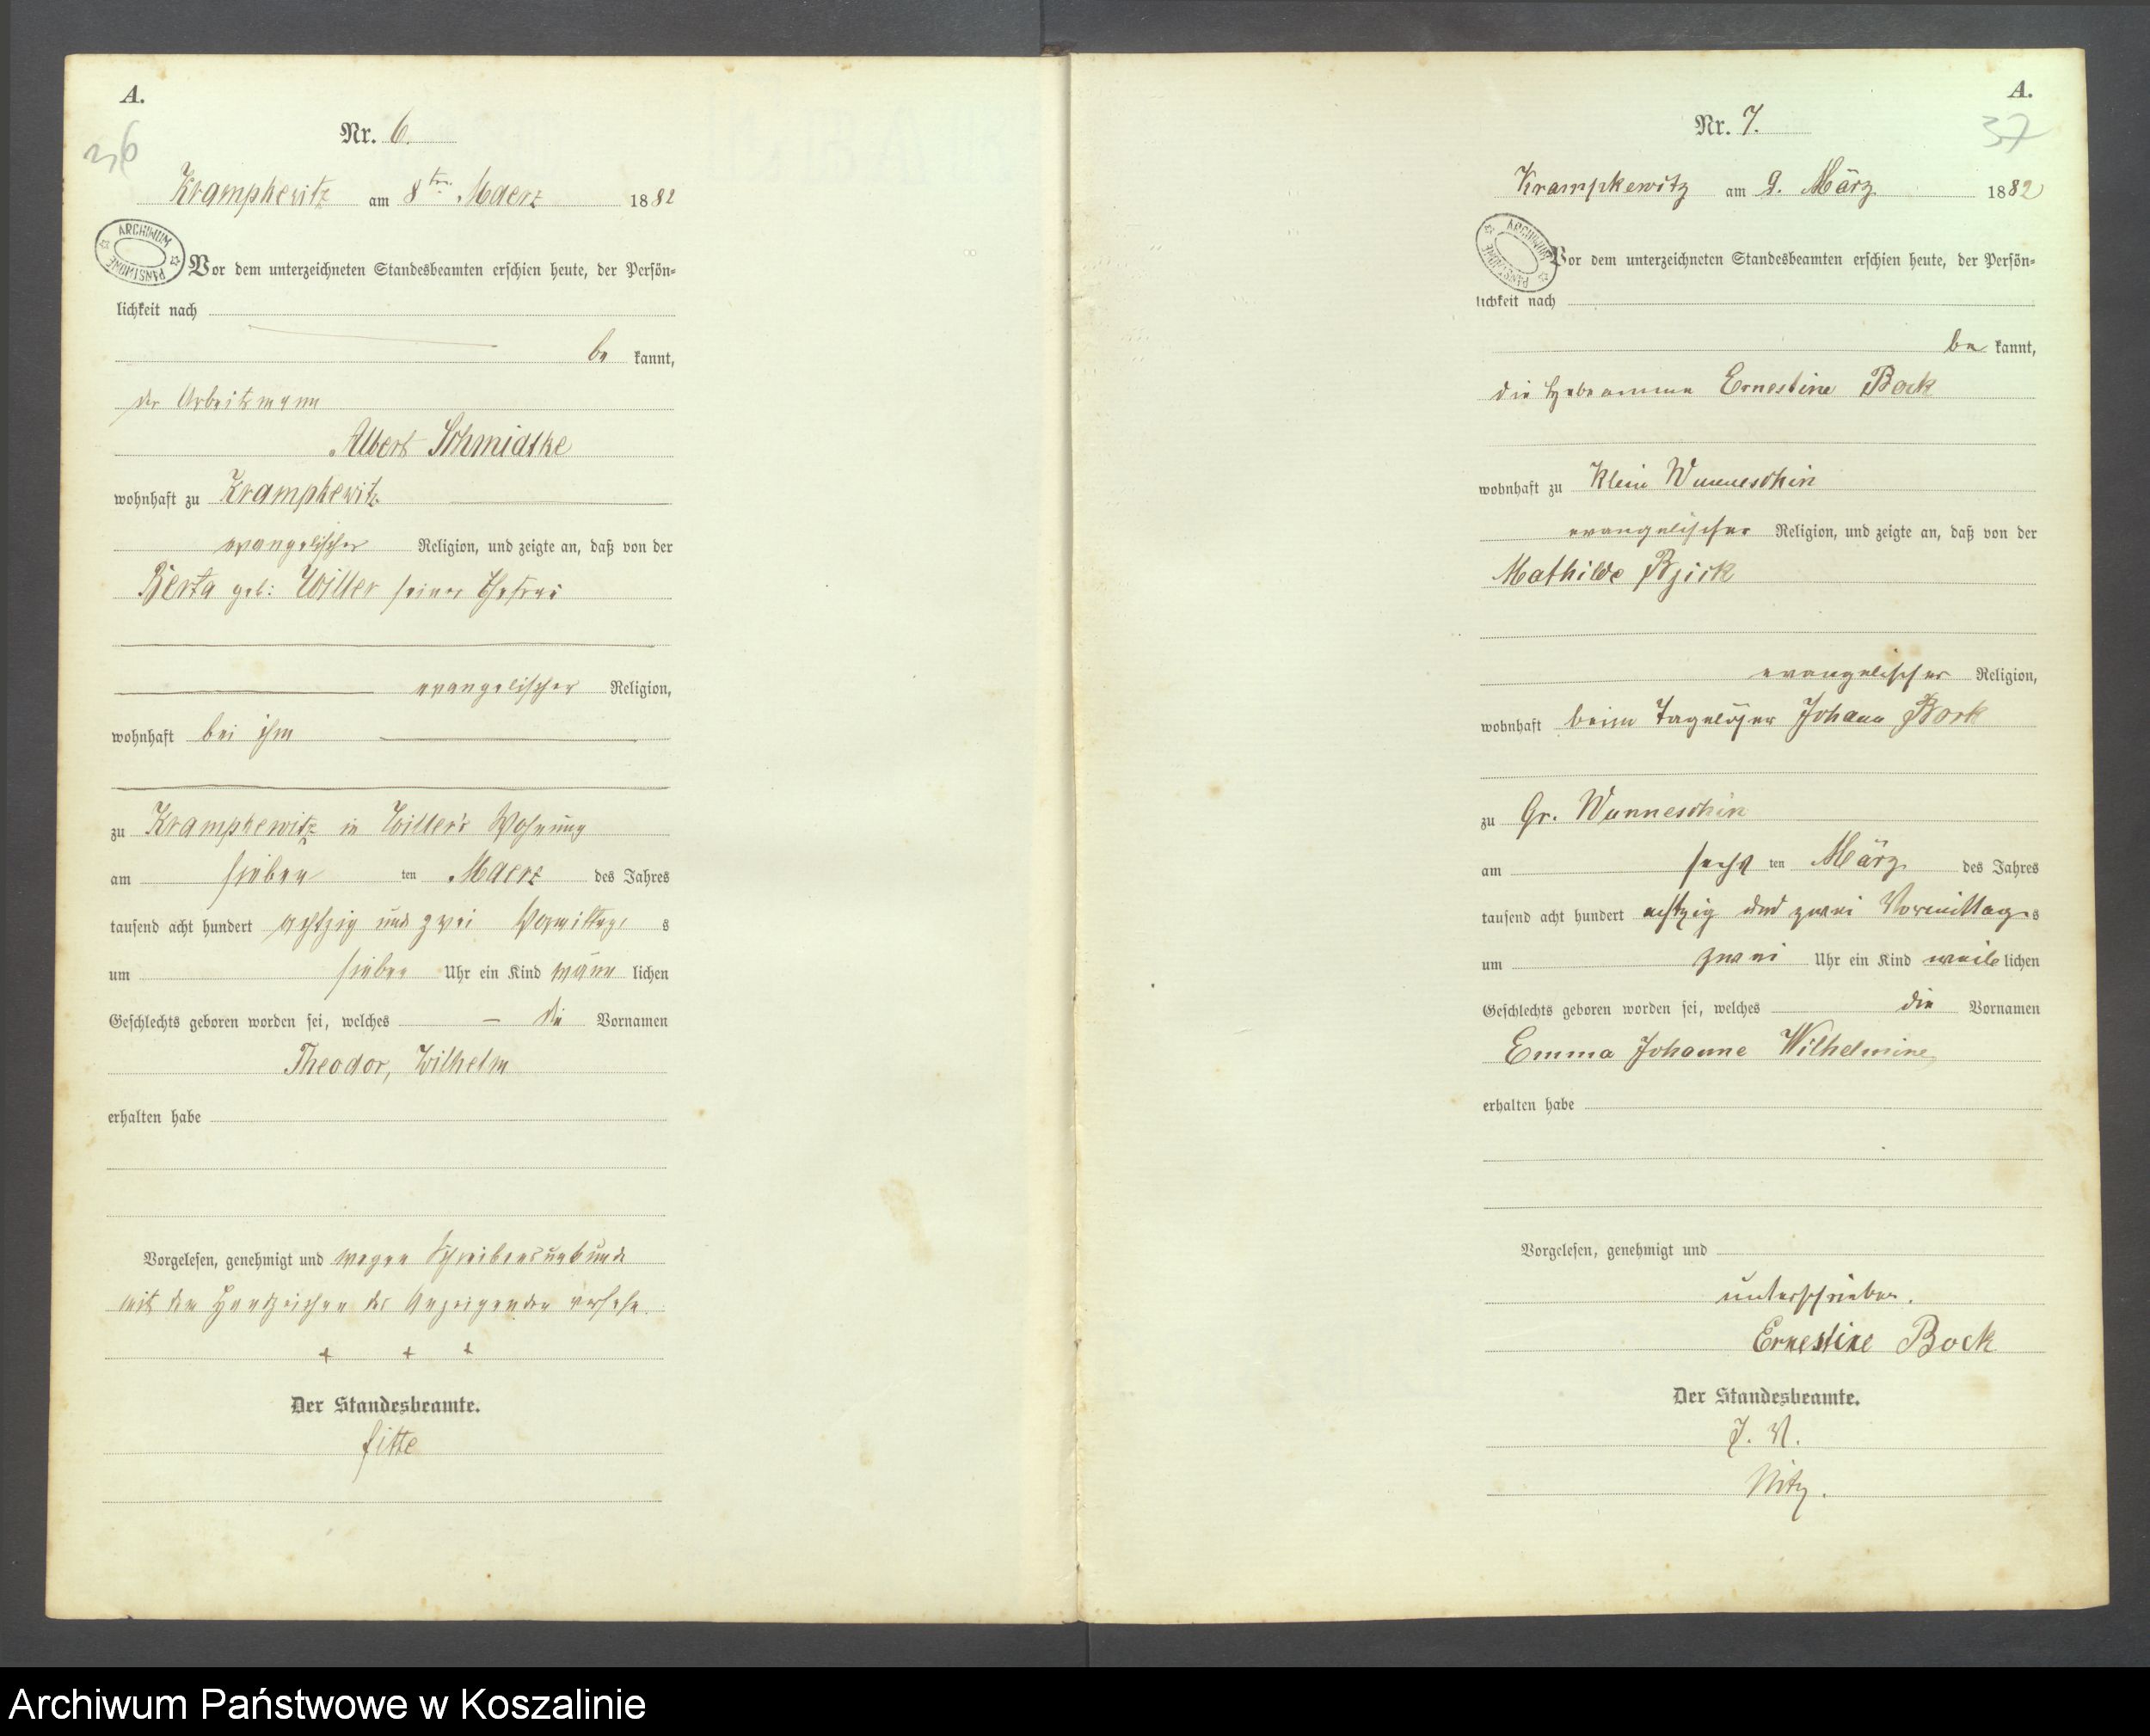 A.
36
Nr. 6.
Krampkewitz am 8ten Maerz 1882
ARCHIWUM PAŃSTWOWE
Vor dem unterzeichneten Standesbeamten erschien heute, der Persön-
lichkeit nach
be kannt,
der Arbeitsmann
Albert Schmidtke
wohnhaft zu Krampkewitz
evangelischer Religion, und zeigte an, daß von der
Berta geb: Willer seiner Ehefrau
evangelischer Religion,
wohnhaft bei ihm
zu Krampkewitz in Willer's Wohnung
am sieben ten Maerz des Jahres
tausend acht hundert achtzig und zwei Vormittags s
um sieben Uhr ein Kind männ lichen
Geschlechts geboren worden sei, welches — die Vornamen
Theodor, Wilhelm
erhalten habe
Vorgelesen, genehmigt und wegen Schreibensunkunde
mit dem Handzeichen des Anzeigenden versehn.
+ + +
Der Standesbeamte.
A.
37
Nr. 7.
Krampkewitz am 9. März 1882
ARCHIWUM PAŃSTWOWE
Vor dem unterzeichneten Standesbeamten erschien heute, der Persön-
lichkeit nach
be kannt,
die Hebeamme Ernestine Bock
wohnhaft zu Klein Wunneschin
evangelischer Religion, und zeigte an, daß von der
Mathilde
evangelischer Religion,
wohnhaft beim Tagelöhner Johann Bork
zu Gr. Wunneschin
am sechs ten März des Jahres
tausend acht hundert achtzig und zwei Vormittags s
um zwei Uhr ein Kind weib lichen
Geschlechts geboren worden sei, welches die Vornamen
Emma Johanne Wilhelmine
erhalten habe
Vorgelesen, genehmigt und
unterschrieben.
Ernestine Bock
Der Standesbeamte.
J. V.
Nitz.
Archiwum Państwowe w Koszalinie